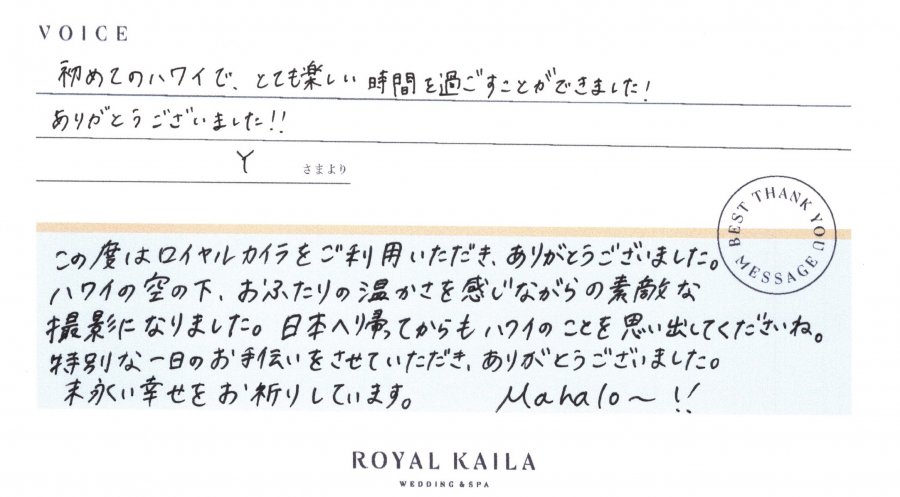 VOICE
初めてのハワイで、とても楽しい時間を過ごすことができました!
ありがとうございました!!
Y さまより
BEST THANK YOU MESSAGE
この度はロイヤルカイラをご利用いただき、ありがとうございました。
ハワイの空の下、おふたりの温かさを感じながらの素敵な
撮影になりました。日本へ帰ってからもハワイのことを思い出してくださいね。
特別な一日のお手伝いをさせていただき、ありがとうございました。
末永い幸せをお祈りしています。 Mahalo~!!
ROYAL KAILA
WEDDING & SPA